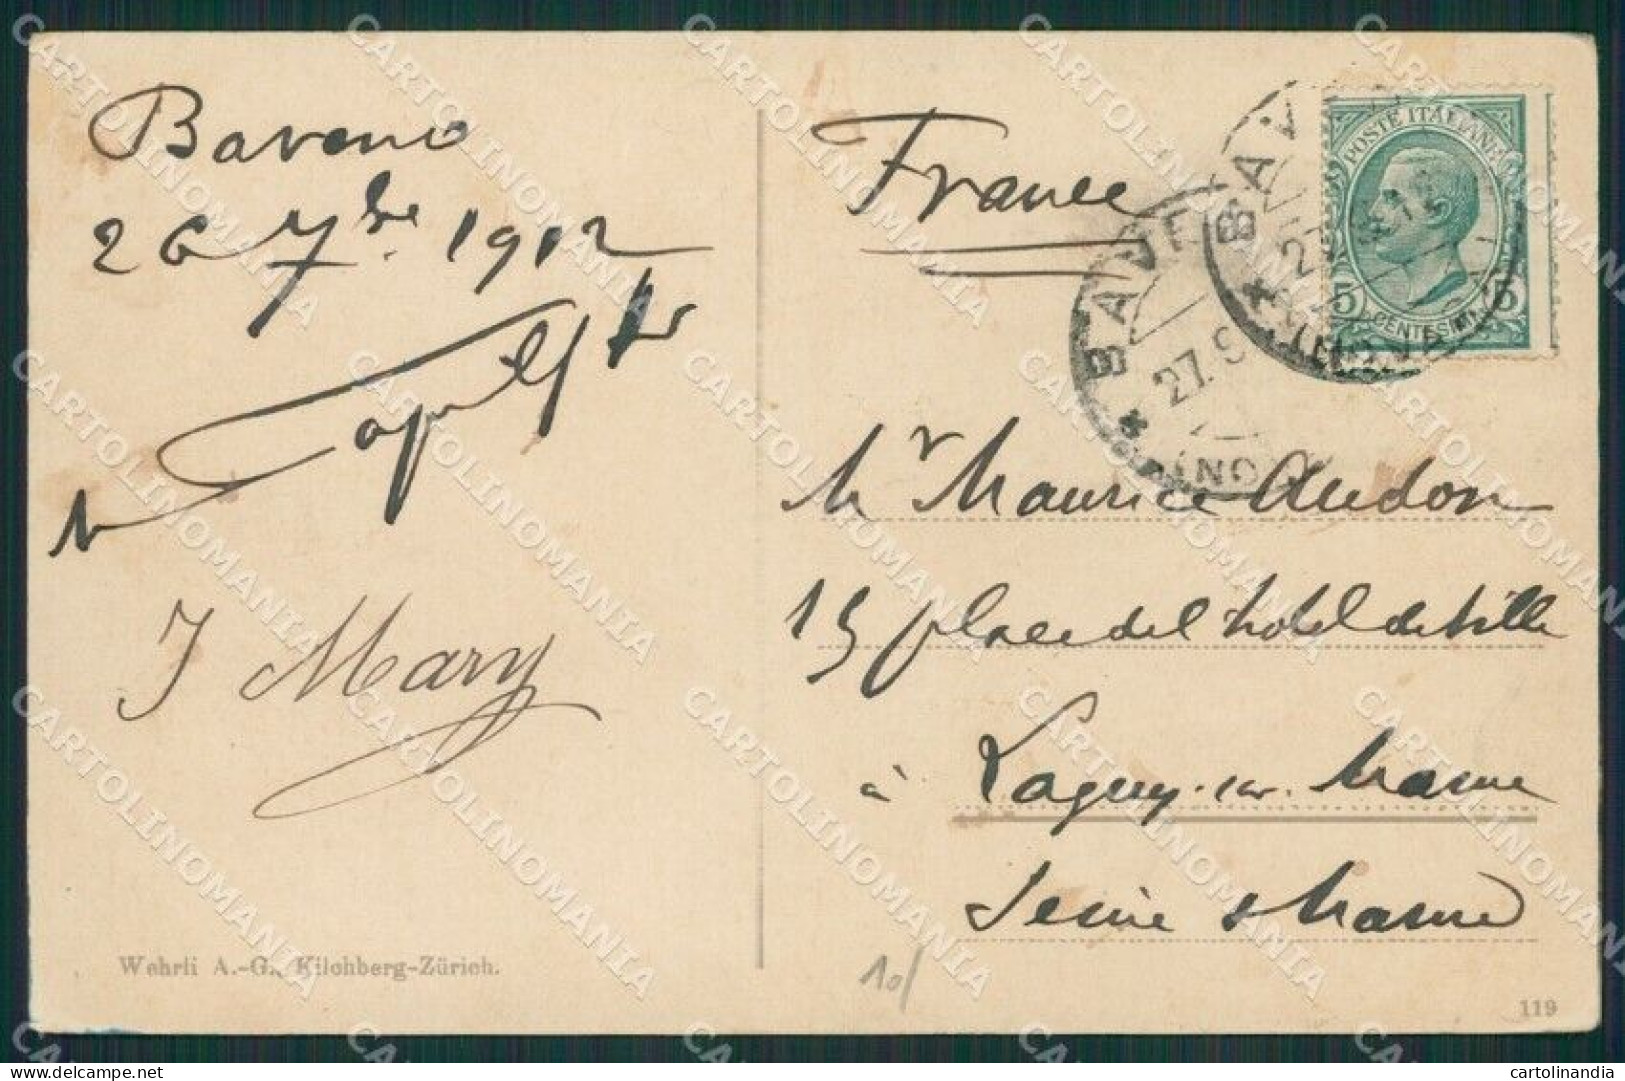 Baveno
26 7bre 1912
J Mary
Wehrli A.-G., Kilchberg-Zürich.
France
POSTE ITALIANE
5 CENTESIMI 5
BAVENO
27.9
Mr Maurice Audon
15 place de l hotel de ville
à Lagny-sur-Marne
Seine & Marne
10/
119
CARTOLINOMANIA
cartolinandia